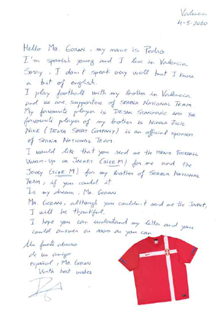 Valencia
4-5-2020
Hello Mr. Goran, my name is Pedro
I'm spanish young and I live in Valencia
Sorry, I don't speak very well but I know
a bit of english.
I play football with my brother in Valencia
and we are supporters of Serbia National Team
My favourite player is Dejan Stankovic and the
favourite player of my brother is
Nike ( Sport Company) is an official sponsor
of Serbia National Team.
I would like that you send me the
Warm-up or Jacket (size M) for me and the
Jersey (size M) for my brother of Serbia National
Team, if you could it
Is my dream, Mr. Goran
Mr. Goran, although you couldn't send me the Jacket,
I will be thankful.
I hope you can understand my letter and your
could answer as soon as you can
Un fuerte abrazo
de un amigo
español, Mr. Goran
With best wishes